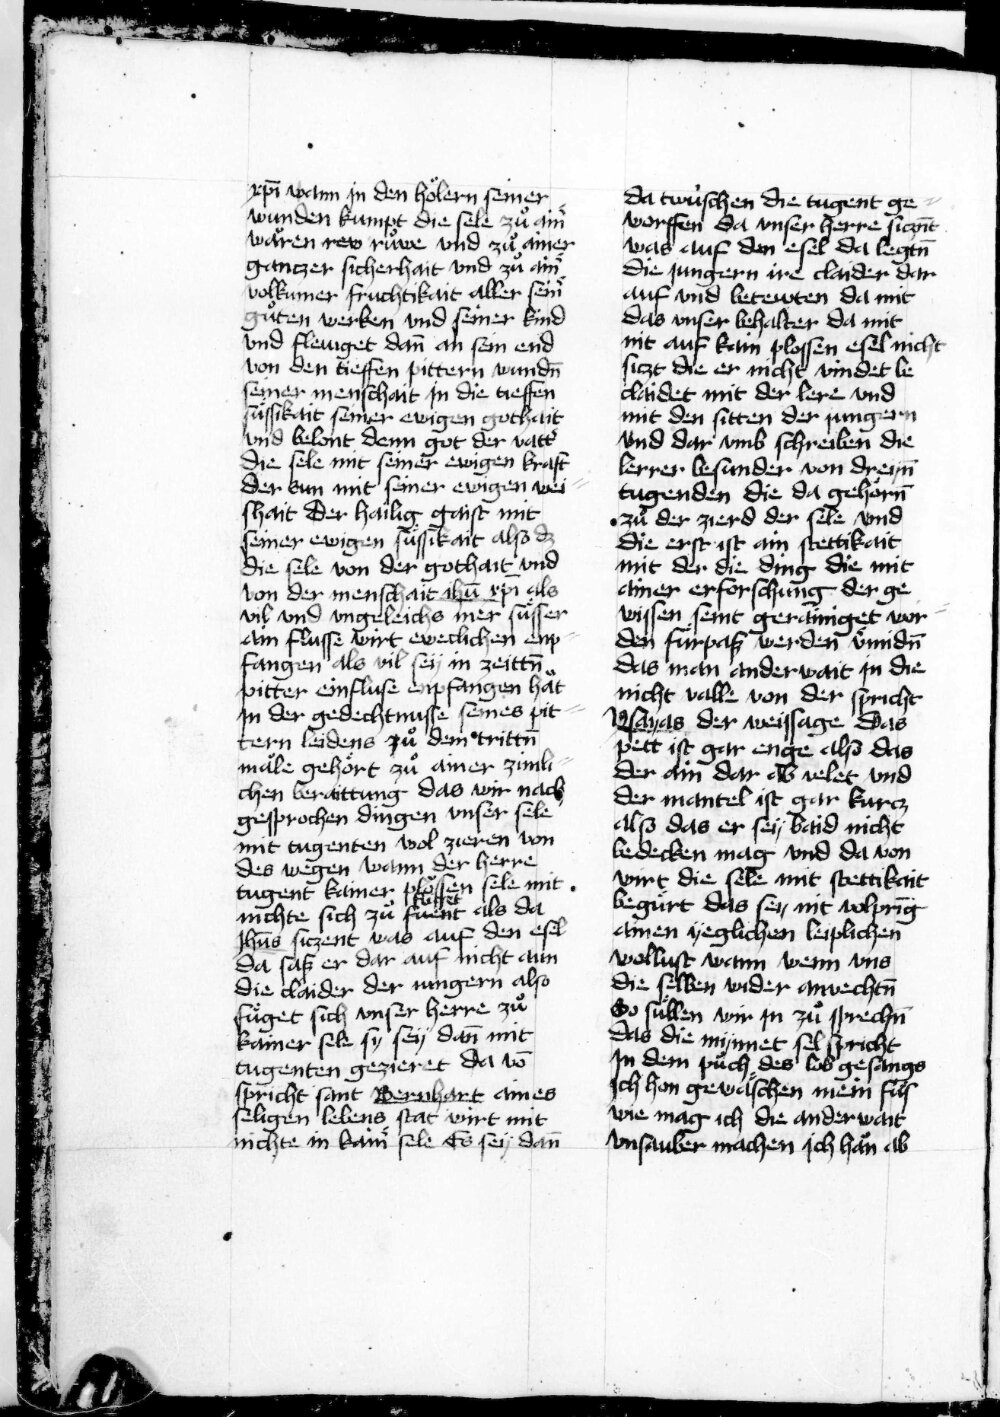 xp̄i wann in den hölern seiner
wunden kumpt die sele zů ain̄
waren rew růwe vnd zů ainer
ganczer sicherhait vnd zů ain̄
volkumer fruchtikait aller sein̄
gůten werken vnd seiner kind
vnd fleuget dan̄ an sein end
von den tieffen pittern wundn̄
seiner menschait in die tieffen
süssikait seiner ewigen gothait
vnd belont denn got der vatt̄
die sele mit seiner ewigen kraft
der sun mit seiner ewigen wei =
shait der hailig gaist mit
seiner ewigen süssikait also dz
die sele von der gothait vnd
von der menschait ihū xp̄i als
vil vnd vngeleichs mer süsser
ain flusse wirt eweclichen enp =
fangen als vil seÿ in zeittn̄
pitter einfluse enpfangen hăt
in der gedechtnusse seines pit =
tern leidens zů dem trittn̄
măle gehört zů ainer zimli =
chen beraittung das wir nach
gesprochen dingen vnser sele
mit tugenten wol zieren von
des wegen wann der herre
tugent kainer plössen sele mit
nichte sich zů füent füget als da
Jhūs siczent was auf den esel
da saß er dar auf nicht ann
die claider der iungern also
füget sich vnser herre zů
kainer sele sy seÿ dan̄ mit
tugenten gezieret da vō
spricht sant Bernhart aines
seligen lebens stat wirt mit
nichte in kain̄ sele Es seÿ dan̄
da twüschen die tugent ge =
worffen da vnser herre siczn̄t
was auf den esel da legtn̄
die iungern ire claider dar
auf vnd betewten da mit
das vnser behalter da mit
nit auf kain plossen esel nicht
siczt die er nicht vindet be
claidet mit der lere vnd
mit den sitten der iungern
vnd dar vmb schreiben die
lerrer besunder von dreÿn̄
tugenden die da gehörn̄
zů der zierd der sele vnd
die erst ist ain stettikait
mit der die ding die mit
ainer erforschung der ge
wissen seint gerainiget wor =
den fürpaß werden v̄midn̄
das man anderwait in die
nicht valle von der spricht
Ysayas der weissage Das
pett ist gar enge also das
der ain dar ab velet vnd
der mantel ist gar kurcz
also das er seÿ baid nicht
bedecken mag vnd da von
wirt die sele mit stettikait
begürt das seÿ nit volprīg
ainen ÿeglichen leiplichen
wollust wann wenn vns
die selben wider anvechtn̄
So süllen wir in zů sprechn̄
das die mÿnnet sel spricht
in dem půch des lob gesangs
ich hon gewäschen mein füs
wie mag ich die anderwait
vnsauber machen ich hăn ab